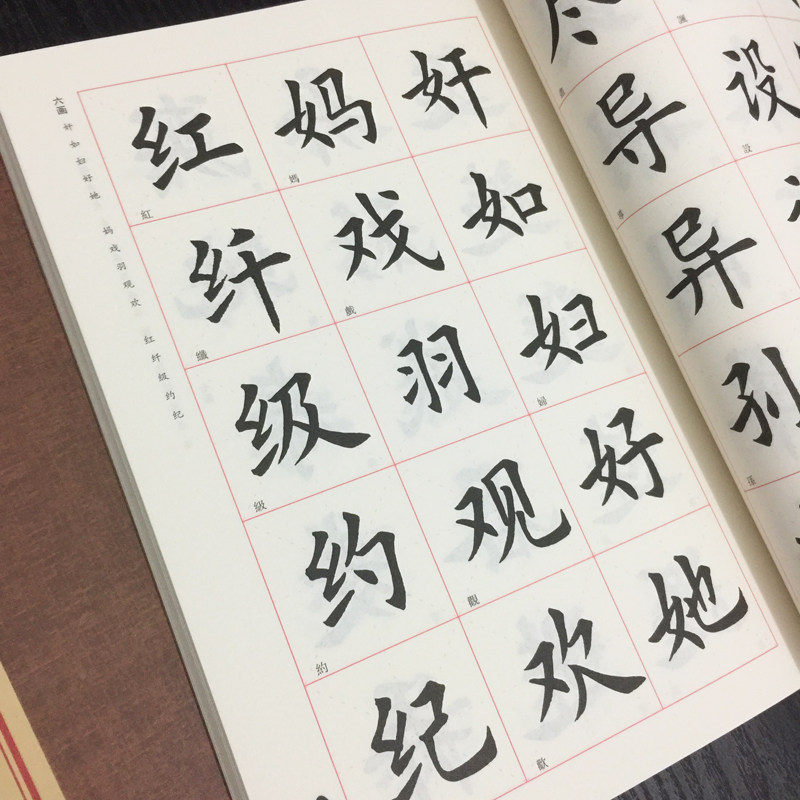 设
設
导
導
异
孙
孫
奸
如
妇
婦
好
她
妈
媽
戏
戲
羽
观
觀
欢
歡
红
紅
纤
纖
级
級
约
約
纪
六画 奸如妇好她 妈戏羽观欢 红纤级约纪